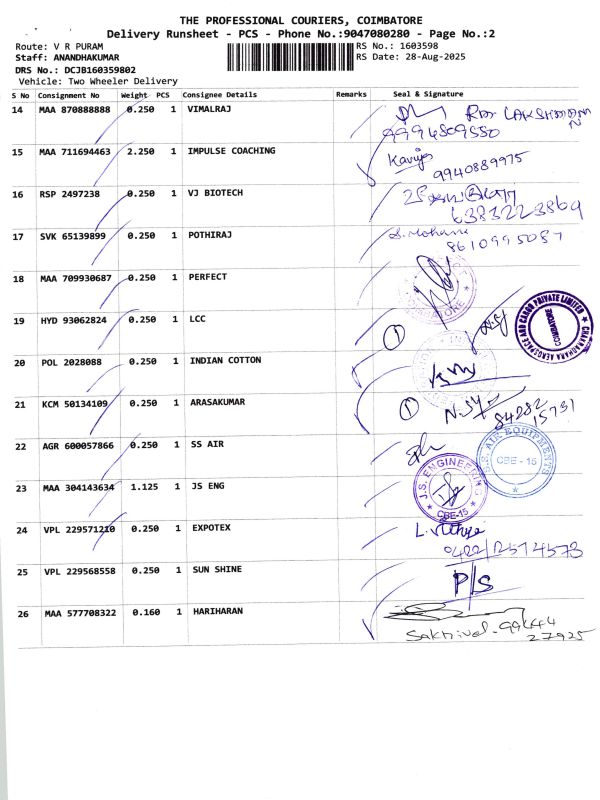 THE PROFESSIONAL COURIERS, COIMBATORE
Delivery Runsheet - PCS - Phone No.:9047080280 - Page No.:2
Route: V R PURAM
RS No.: 1603598
Staff: ANANDHAKUMAR
RS Date: 28-Aug-2025
DRS No.: DCJB160359802
Vehicle: Two Wheeler Delivery
S No Consignment No Weight PCS Consignee Details Remarks Seal & Signature
14 MAA 870888888 0.250 1 VIMALRAJ
9994809550
15 MAA 711694463 2.250 1 IMPULSE COACHING
Kaviya
9940889975
16 RSP 2497238 0.250 1 VJ BIOTECH
6383223869
17 SVK 65139899 0.250 1 POTHIRAJ
S. Mohana
8610995087
18 MAA 709930687 0.250 1 PERFECT
19 HYD 93062824 0.250 1 LCC
1
CHAKRADHARA AEROSPACE AND CARGO PRIVATE LIMITED
COIMBATORE
20 POL 2028088 0.250 1 INDIAN COTTON
21 KCM 50134109 0.250 1 ARASAKUMAR
1
84282
15731
22 AGR 600057866 0.250 1 SS AIR
S.S. AIR EQUIPMENTS
CBE - 15
23 MAA 304143634 1.125 1 JS ENG
J.S. ENGINEERING
CBE-15
24 VPL 229571210 0.250 1 EXPOTEX
0422/2514573
25 VPL 229568558 0.250 1 SUN SHINE
P/S
26 MAA 577708322 0.160 1 HARIHARAN
Sakthivel - 99444
27925